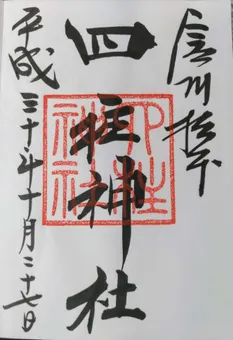 信州松本
四柱神社
平成三十年十月二十七日
四柱神社